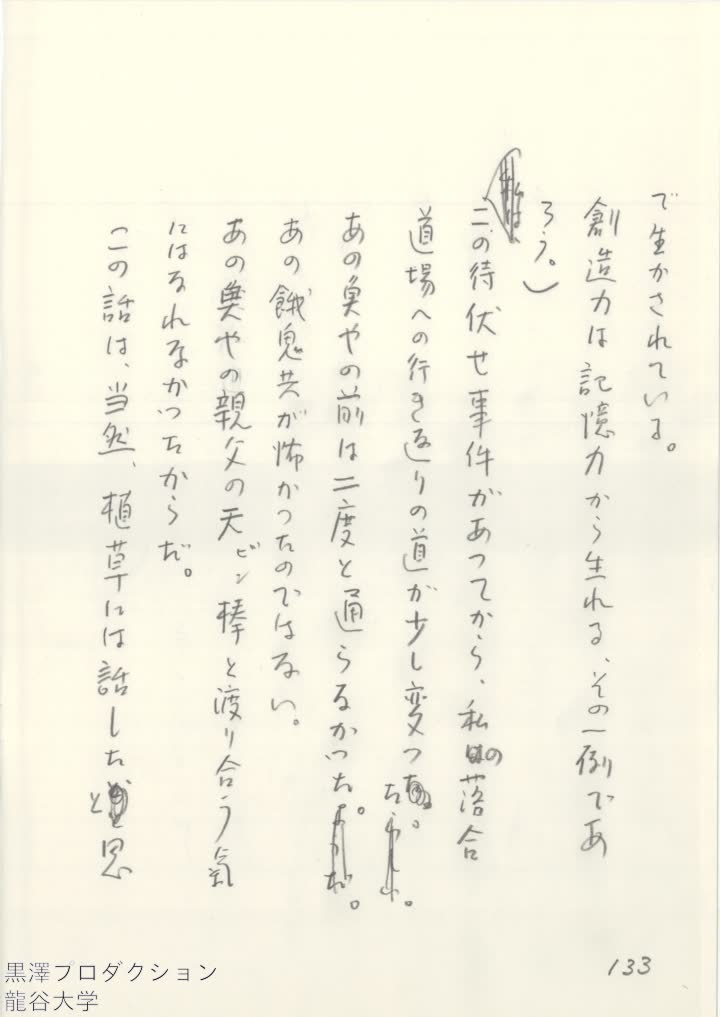 で生かされている。
創造力は記憶力から生れる、その一例であ
ろう。）
この待伏せ事件があつてから、私の落合
道場への行き返りの道が少し変つた。
あの魚やの前は二度と通らなかつた。
あの餓鬼共が怖かつたのではない。
あの魚やの親父の天ビン棒と渡り合う気
にはなれなかつたからだ。
この話は、当然、植草には話したと思
133
黒澤プロダクション
龍谷大学